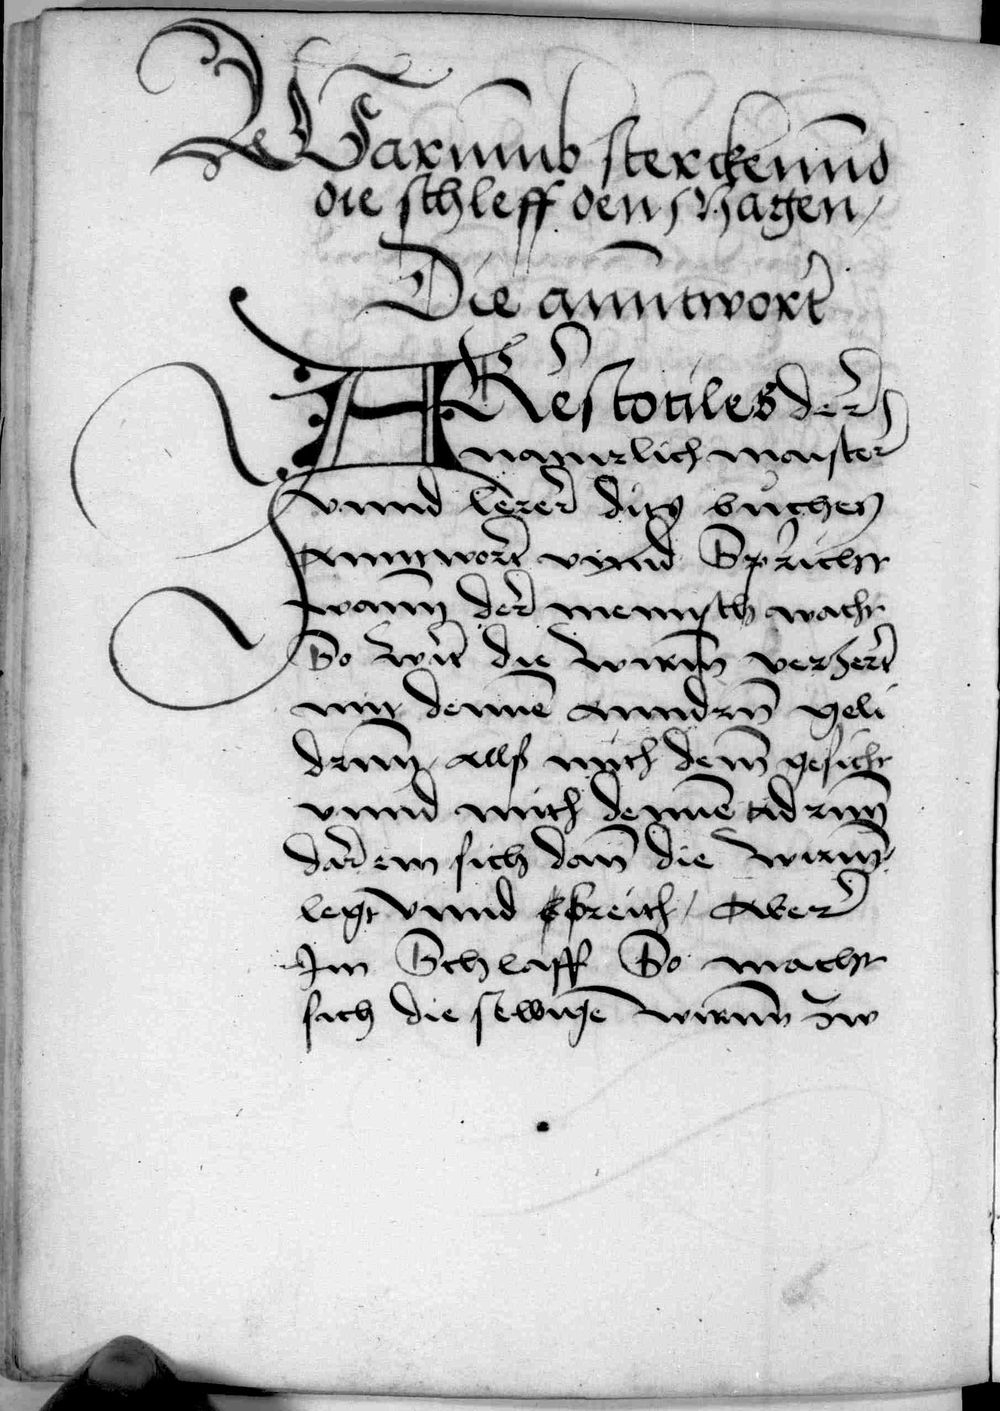 WArumb sterckennd
die schleff den Magen /
Die anntwort
ARestotiles der
naturlich maister
vnnd lerer diß buchen
Anntwort vnnd Spricht
wann der mennsch wacht
So wirt die wirm verzert
mit dennē anndrn geli
drnn, Alls mith dem gesicht
vnnd mith dennē adrnn
darein sich dan die wirm /
legt vnnd spreith / Aber
Im Schlaff So macht
sich die selbige wirmm zw